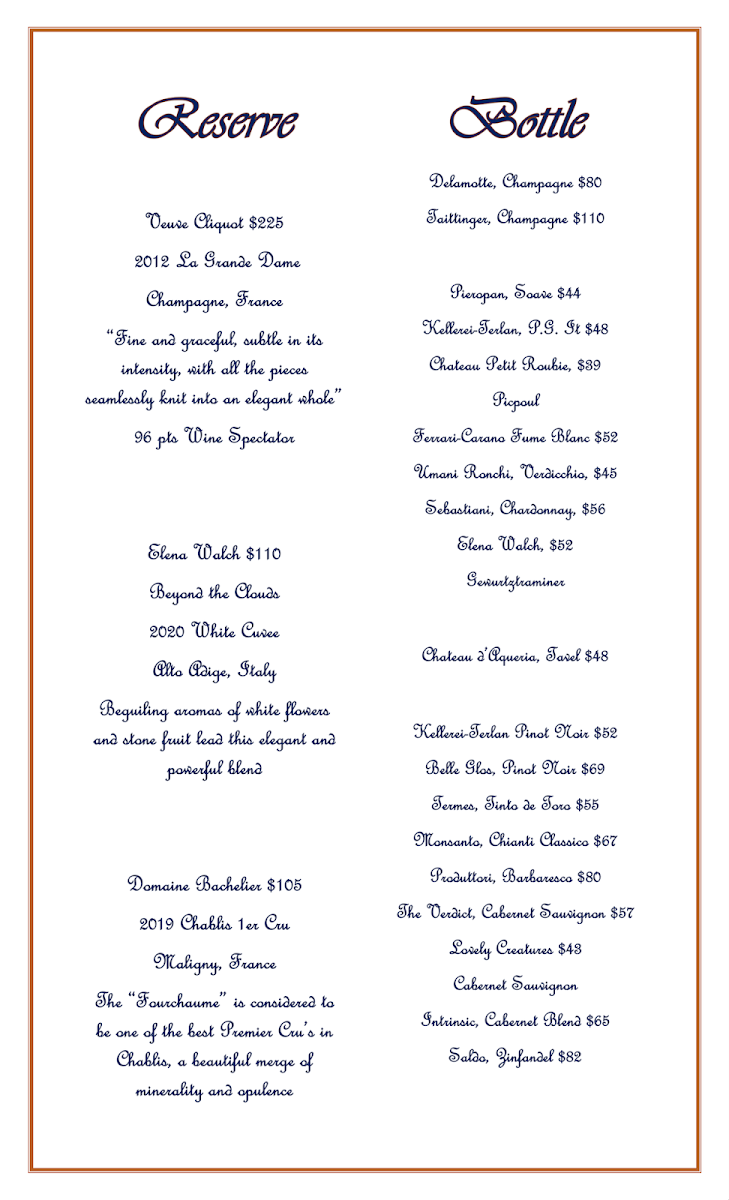 Reserve
Veuve Cliquot $225
2012 La Grande Dame
Champagne, France
“Fine and graceful, subtle in its
intensity, with all the pieces
seamlessly knit into an elegant whole”
96 pts Wine Spectator
Elena Walch $110
Beyond the Clouds
2020 White Cuvee
Alto Adige, Italy
Beguiling aromas of white flowers
and stone fruit lead this elegant and
powerful blend
Domaine Bachelier $105
2019 Chablis 1er Cru
Maligny, France
The “Fourchaume” is considered to
be one of the best Premier Cru’s in
Chablis, a beautiful merge of
minerality and opulence
Bottle
Delamotte, Champagne $80
Taittinger, Champagne $110
Pieropan, Soave $44
Kellerei-Terlan, P.G. It $48
Chateau Petit Roubie, $39
Picpoul
Ferrari-Carano Fume Blanc $52
Umani Ronchi, Verdicchio, $45
Sebastiani, Chardonnay, $56
Elena Walch, $52
Gewurtztraminer
Chateau d’Aqueria, Tavel $48
Kellerei-Terlan Pinot Noir $52
Belle Glos, Pinot Noir $69
Termes, Tinto de Toro $55
Monsanto, Chianti Classico $67
Produttori, Barbaresco $80
The Verdict, Cabernet Sauvignon $57
Lovely Creatures $43
Cabernet Sauvignon
Intrinsic, Cabernet Blend $65
Saldo, Zinfandel $82